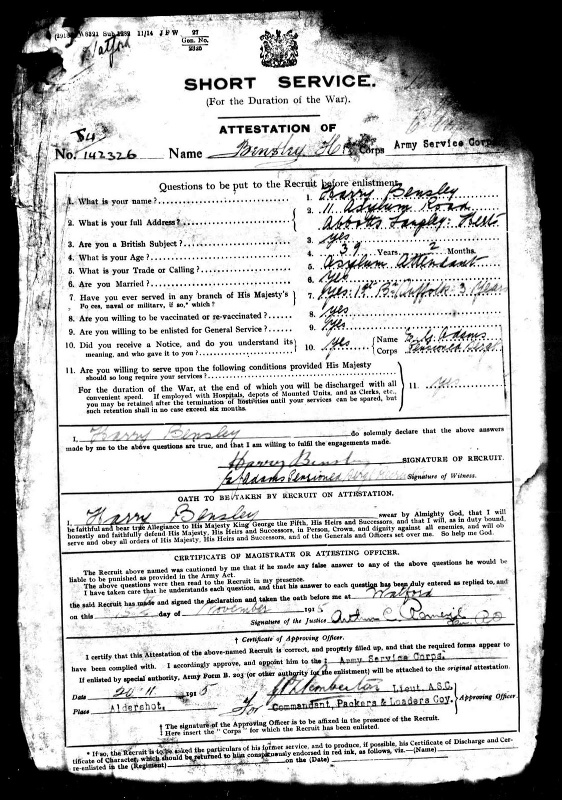 Watford
SHORT SERVICE.
(For the Duration of the War).
ATTESTATION OF
No. 142326 Name Bensley H Corps Army Service Corps
Questions to be put to the Recruit before enlistment.
1. What is your name? 1. Harry Bensley
2. What is your full Address? 2. 11 Asylum Road
Abbotts Langley Herts
3. Are you a British Subject? 3. Yes
4. What is your Age? 4. 39 Years, 2 Months.
5. What is your Trade or Calling? 5. Asylum Attendant
6. Are you Married? 6. Yes
7. Have you ever served in any branch of His Majesty's
Forces, naval or military, if so,* which? 7. Yes 1st Bn Suffolks 3 Years
8. Are you willing to be vaccinated or re-vaccinated? 8. Yes
9. Are you willing to be enlisted for General Service? 9. Yes
10. Did you receive a Notice, and do you understand its
meaning, and who gave it to you? 10. Yes Name Adams
Corps
11. Are you willing to serve upon the following conditions provided His Majesty
should so long require your services?
For the duration of the War, at the end of which you will be discharged with all
convenient speed. If employed with Hospitals, depots of Mounted Units, and as Clerks, etc.,
you may be retained after the termination of hostilities until your services can be spared, but
such retention shall in no case exceed six months. 11. Yes
I, Harry Bensley do solemnly declare that the above answers
made by me to the above questions are true, and that I am willing to fulfil the engagements made.
Harry Bensley SIGNATURE OF RECRUIT.
Adams Signature of Witness.
OATH TO BE TAKEN BY RECRUIT ON ATTESTATION.
I, Harry Bensley swear by Almighty God, that I will
be faithful and bear true Allegiance to His Majesty King George the Fifth, His Heirs and Successors, and that I will, as in duty bound,
honestly and faithfully defend His Majesty, His Heirs and Successors, in Person, Crown, and dignity against all enemies, and will ob
serve and obey all orders of His Majesty, His Heirs and Successors, and of the Generals and Officers set over me. So help me God.
CERTIFICATE OF MAGISTRATE OR ATTESTING OFFICER.
The Recruit above named was cautioned by me that if he made any false answer to any of the above questions he would be
liable to be punished as provided in the Army Act.
The above questions were then read to the Recruit in my presence.
I have taken care that he understands each question, and that his answer to each question has been duly entered as replied to, and
the said Recruit has made and signed the declaration and taken the oath before me at Watford
on this day of November 1915
Signature of the Justice Arthur C
† Certificate of Approving Officer.
I certify that this Attestation of the above-named Recruit is correct, and properly filled up, and that the required forms appear to
have been complied with. I accordingly approve, and appoint him to the ‡ Army Service Corps.
If enlisted by special authority, Army Form B. 203 (or other authority for the enlistment) will be attached to the original attestation.
Date 20.11 1915 Pemberton Lieut. A.S.C.
Place Aldershot. For Commandant, Packers & Loaders Coy. Approving Officer.
† The signature of the Approving Officer is to be affixed in the presence of the Recruit.
‡ Here insert the "Corps" for which the Recruit has been enlisted.
* If so, the Recruit is to be asked the particulars of his former service, and to produce, if possible, his Certificate of Discharge and Cer-
tificate of Character, which should be returned to him conspicuously endorsed in red ink, as follows, viz.—(Name)
re-enlisted in the (Regiment) on the (Date)